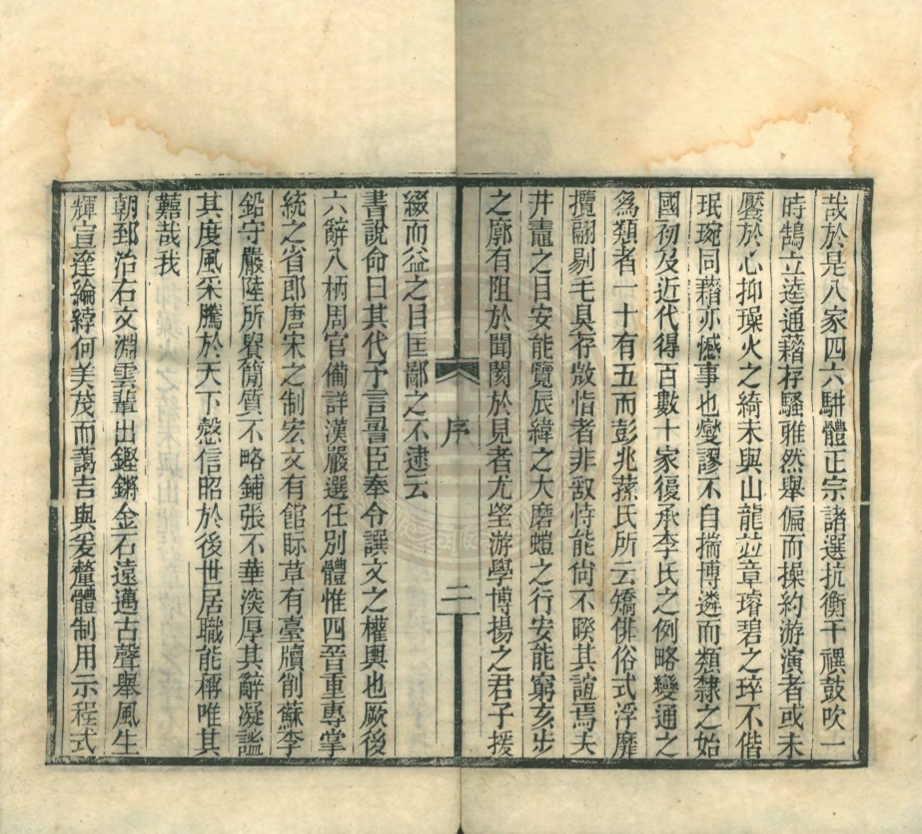 哉於是八家四六駢體正宗諸選抗衡千禩鼓吹一
時鵠立逵通藉存騷雅然舉偏而操約游演者或未
饜於心抑璪火之綺未與山龍竝章璿碧之琗不偕
珉琬同藉亦憾事也燮謬不自揣博遴而類隸之始
國初及近代得百數十家復承李氏之例略變通之
爲類者一十有五而彭兆蓀氏所云矯俳俗式浮靡
攬翮剔毛具存敚恉者非敢恃能尙不睽其誼焉夫
井鼃之目安能覽辰緯之大磨螘之行安能窮亥步
之廓有阻於聞閡於見者尤朢游學博揚之君子援
綴而益之目匡鄙之不逮云
序
二
書說命曰其代予言䛑臣奉令譔文之權輿也厥後
六辭八柄周官備詳漢嚴選任別體惟四晉重專掌
統之省郎唐宋之制宏文有館眎草有臺牘削蘇李
鉛守嚴陸所賚簡質不略鋪張不華渙厚其辭凝謐
其度風采騰於天下愨信昭於後世居職能稱唯其
囏哉我
朝郅治右文淵雲輩出鏗鏘金石遠邁古聲舉風生
輝宣達綸綍何美茂而藹吉與爰釐體制用示程式